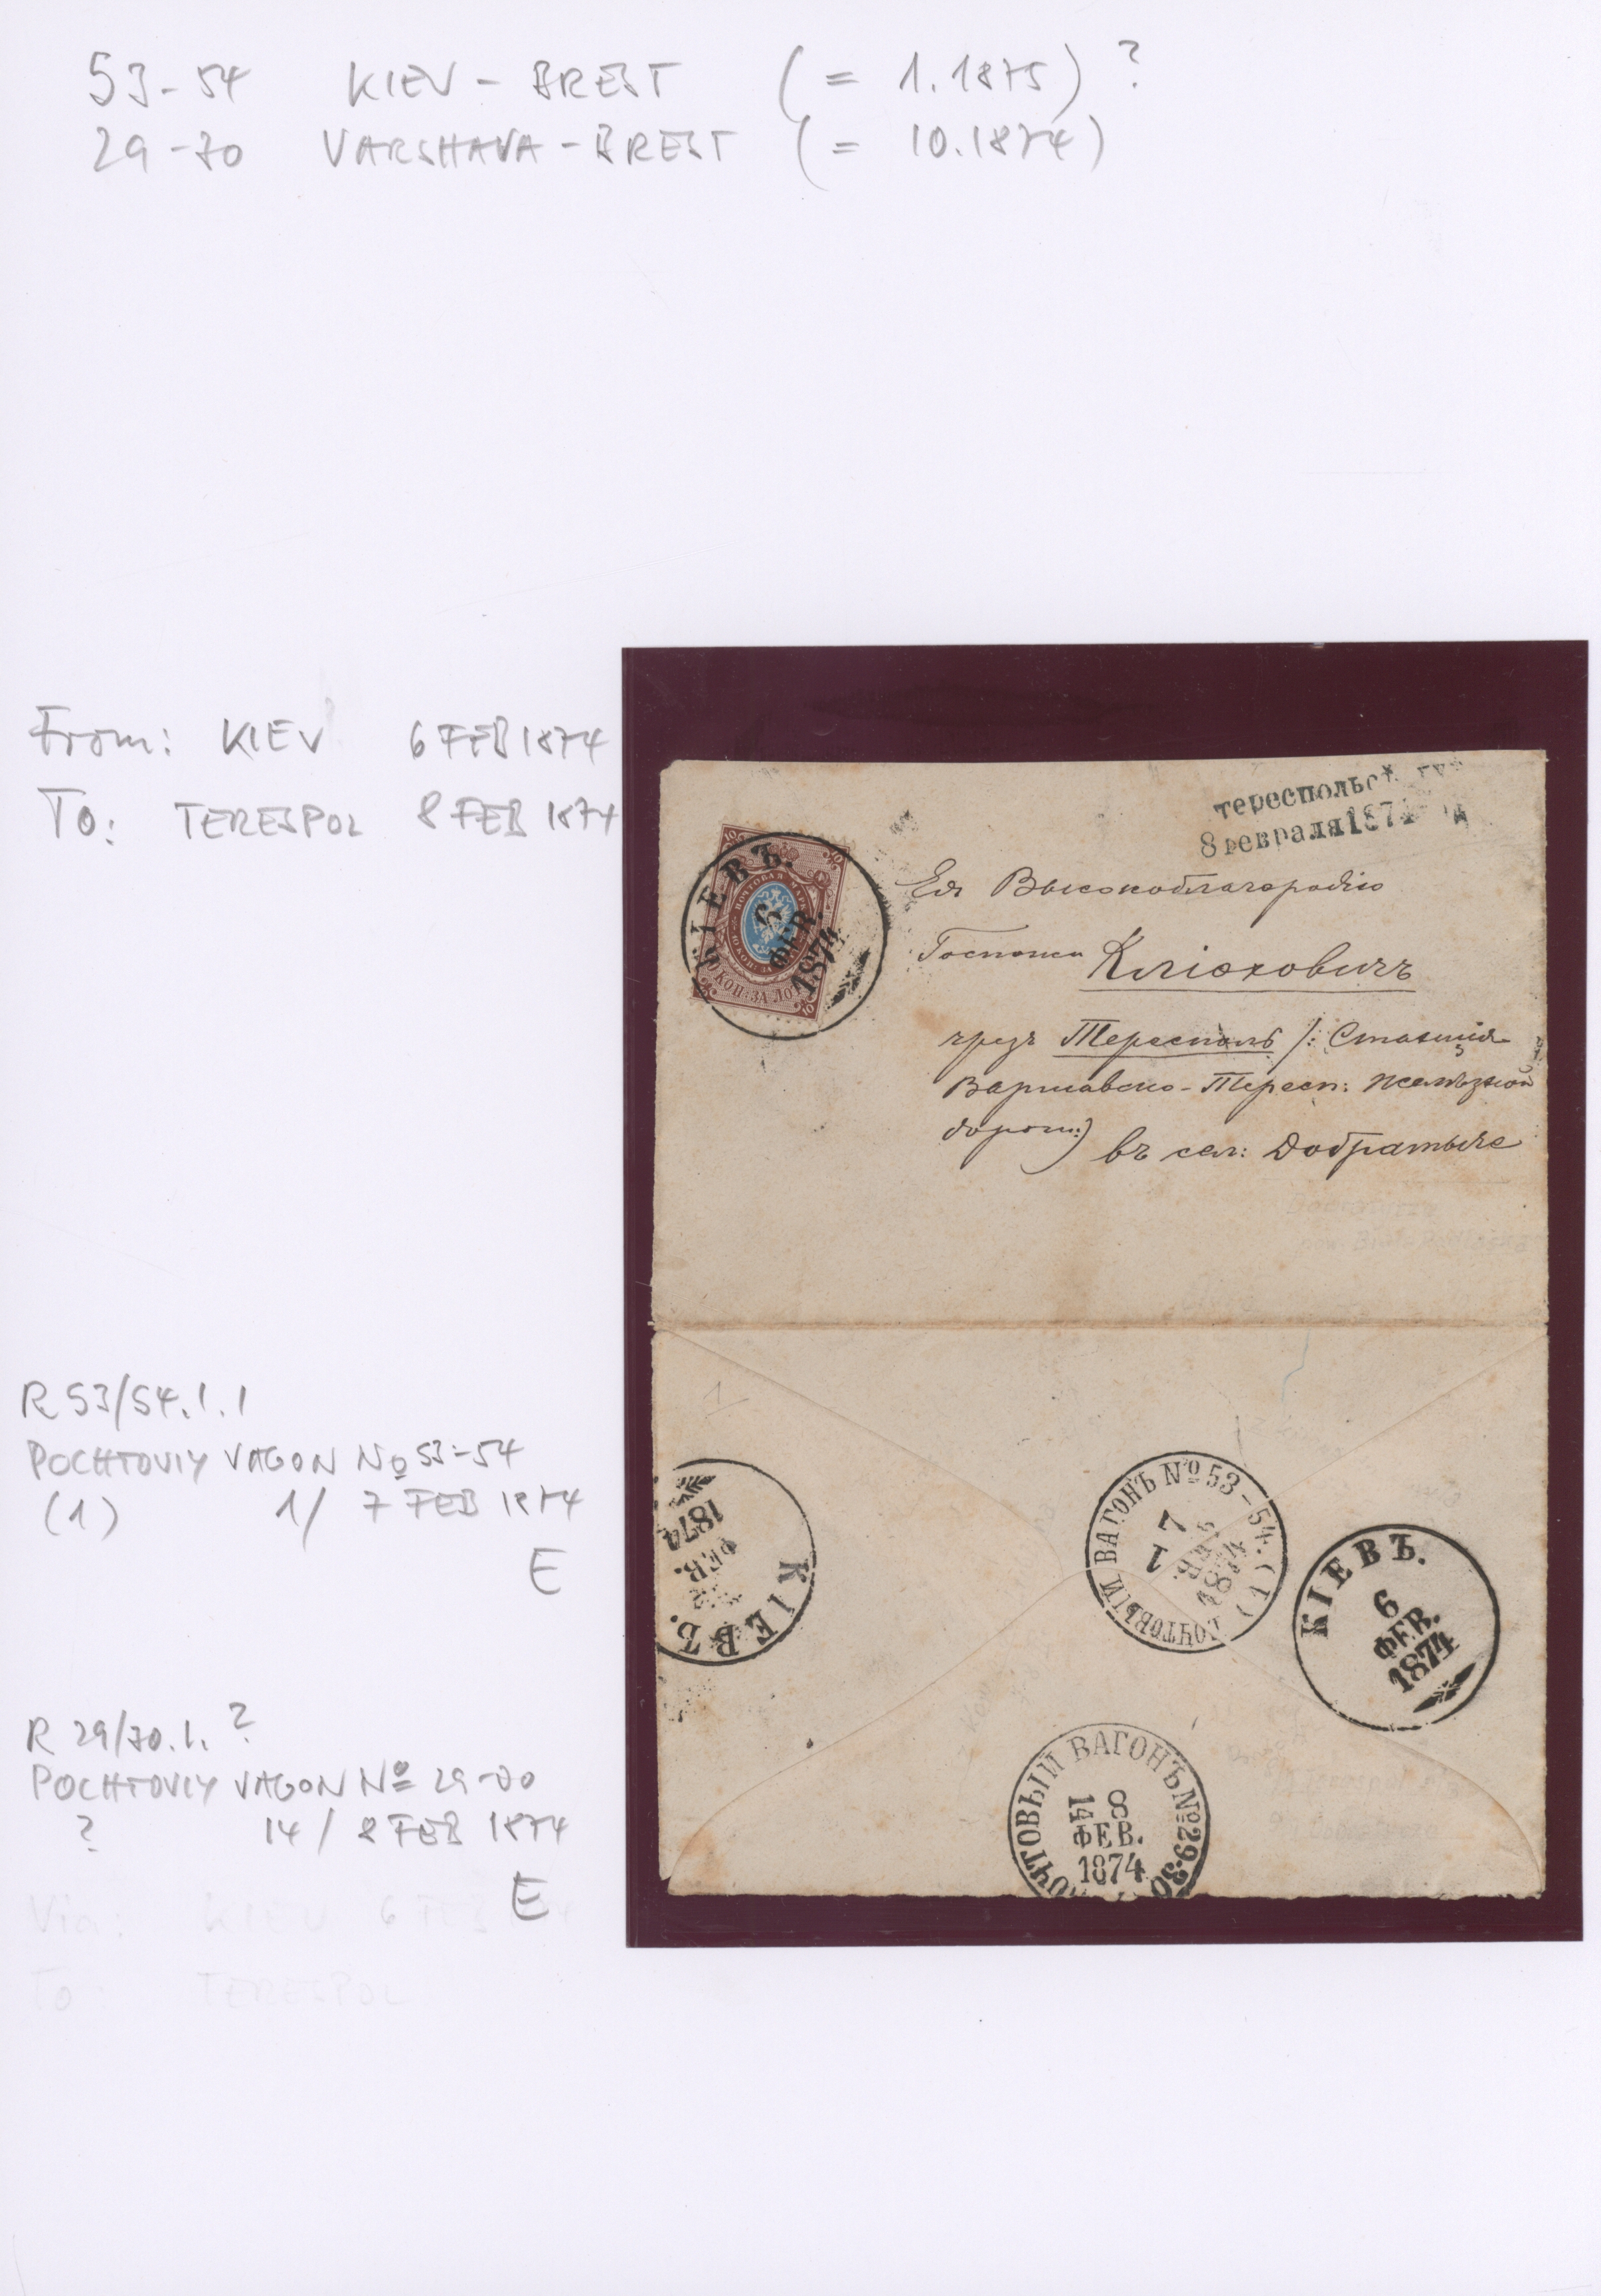 53-54 KIEV - BREST (= 1.1875) ?
29-70 VARSHAVA - BREST (= 10.1874)
From: KIEV 6 FEB 1874
To: TERESPOL 8 FEB 1874
тереспольс
8 февраля 1874
КІЕВЪ.
6
ФЕВ.
1874
10 КОП: ЗА ЛОТЪ
Ея Высокоблагородію
Госпожи Клюховичъ
чрезъ Тересполь /: Станція
Варшавско-Тересп: желѣзной
дорог:) въ сел: Добратыче
R 53/54.1.1
POCHTOVIY VAGON No 53-54
(1) 1/ 7 FEB 1874
E
ПОЧТОВЫЙ ВАГОНЪ № 53-54. (1)
7
1
ФЕВ.
1874
КІЕВЪ.
ФЕВ.
1874
КІЕВЪ.
6
ФЕВ.
1874
R 29/70.1. ?
POCHTOVIY VAGON No 29-70
? 14 / 8 FEB 1874
E
ПОЧТОВЫЙ ВАГОНЪ № 29-30
8
14
ФЕВ.
1874
Via: KIEV 6 FEB
To: TERESPOL